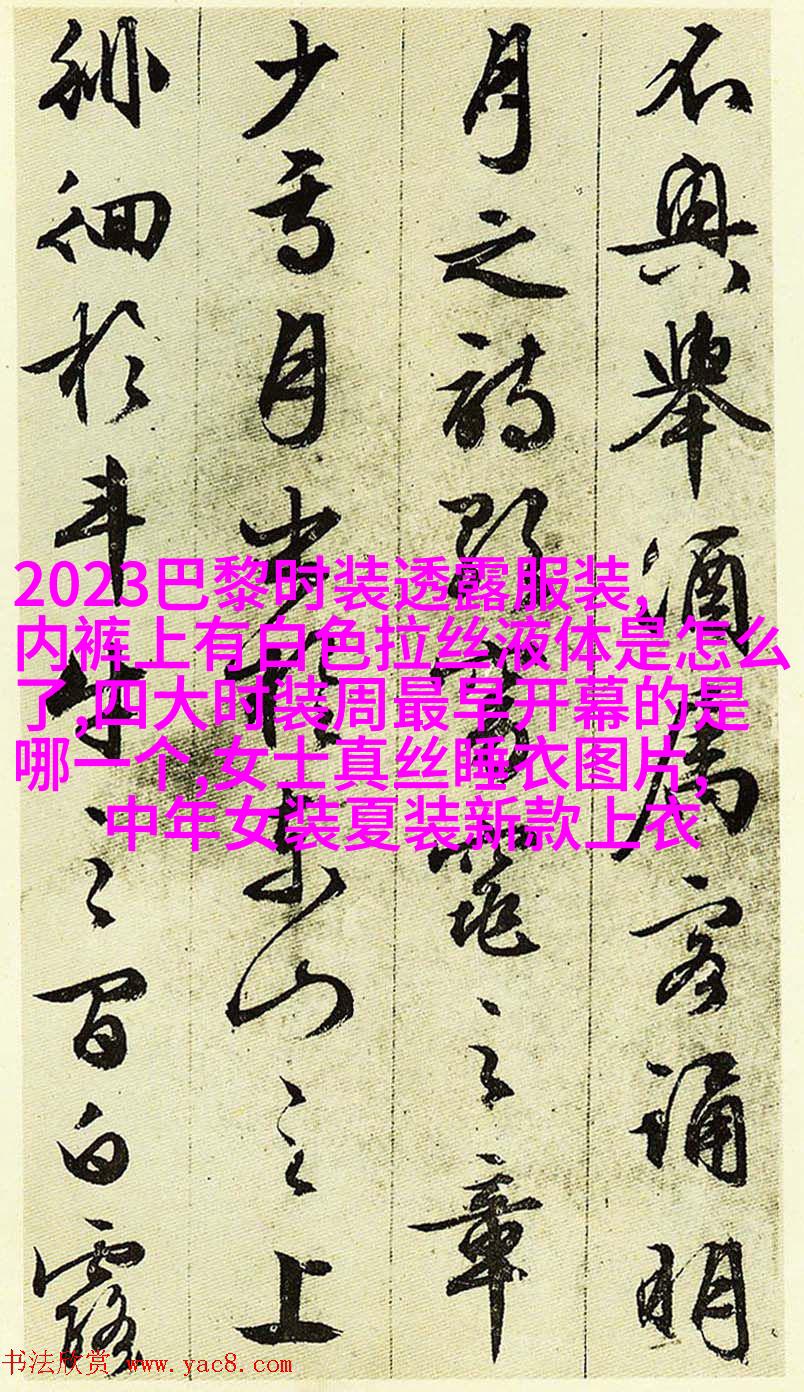 不興舉酒属客誦明
月之詩歌窈窕之章
少焉月出於東山之上
徘徊於斗牛之間白露
2023巴黎时装透露服装,
内裤上有白色拉丝液体是怎么
了,四大时装周最早开幕的是
哪一个,女士真丝睡衣图片,
中年女装夏装新款上衣
书法欣赏 www.yac8.com